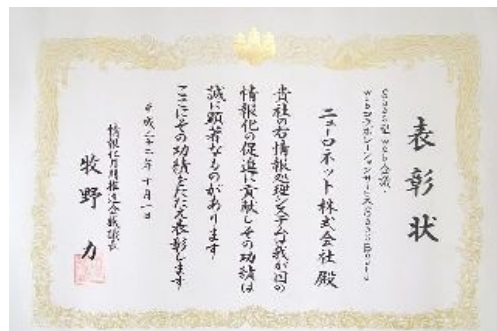 表彰状
SaaS型 Web会議・
Webコラボレーションサービス SaaSBoard
ニューロネット株式会社 殿
貴社の右情報処理システムは我が国の
情報化の促進に貢献しその功績は
誠に顕著なものがあります
ここにその功績をたたえ表彰します
平成二十二年十月一日
情報化月間推進会議議長
牧野 力